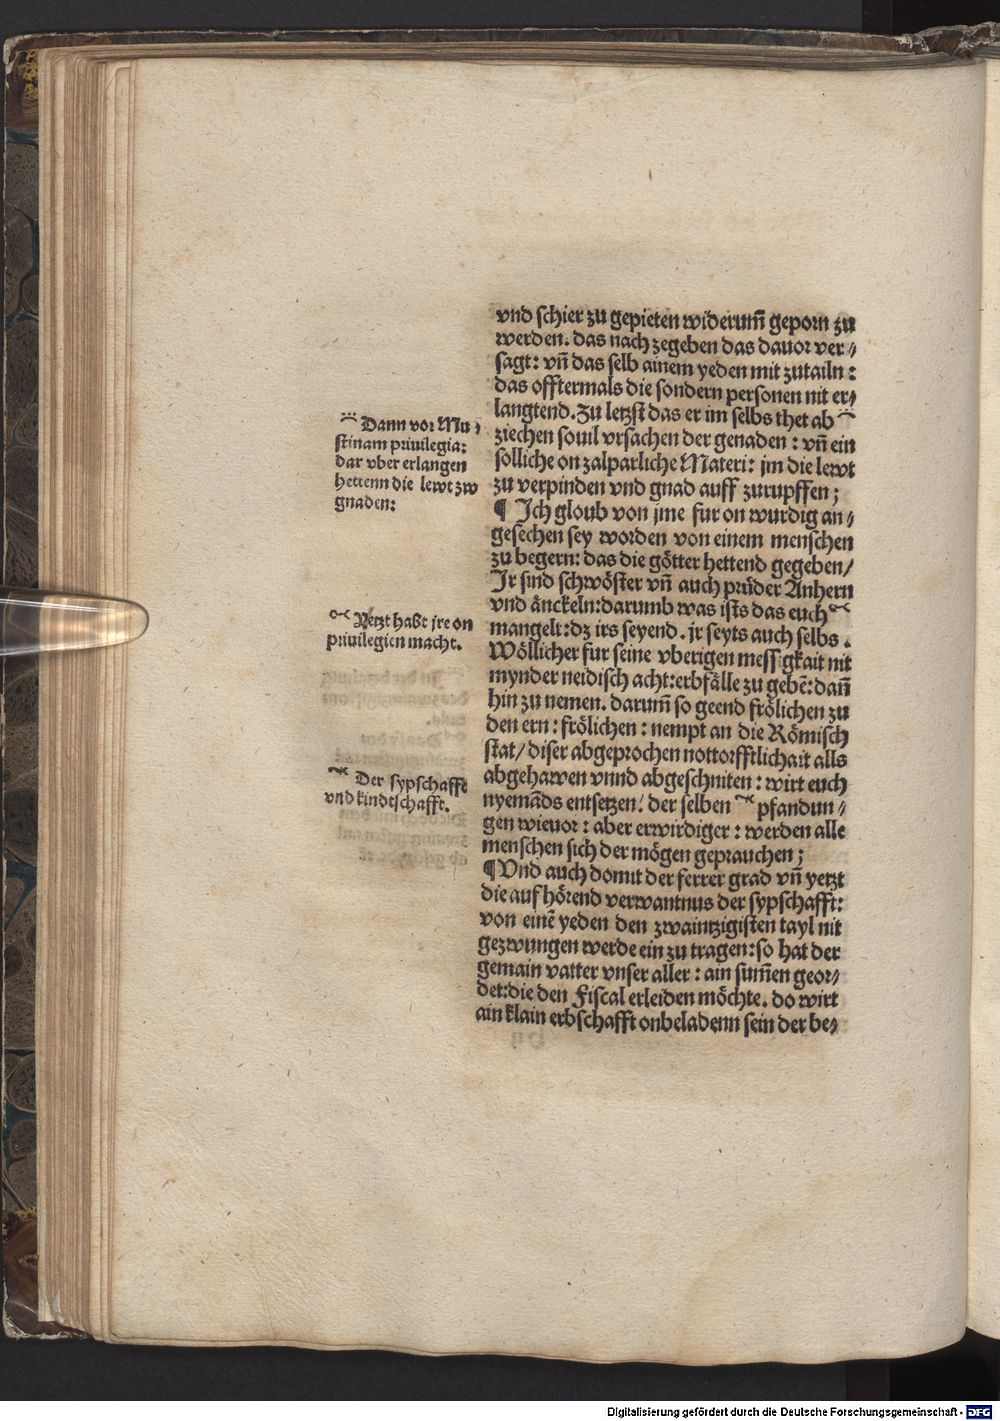 vnd schier zu gepieten widerum̄ geporn zu
werden. das nach zegeben das dauor ver⸗
sagt: vn̄ das selb ainem yeden mit zutailn:
das offtermals die sondern personen nit er⸗
langtend. Zu letzst das er im selbs thet ab
ziechen souil vrsachen der genaden: vn̄ ein
solliche on zalparliche Materi: jm die lewt
zu verpinden vnd gnad auff zurupffen;
¶ Ich gloub von jme fur on wurdig an⸗
gesechen sey worden von einem menschen
zu begern: das die götter hettend gegeben/
Ir sind schwöster vn̄ auch prüder Anhern
vnd änckeln: darumb was ists das euch
mangelt: dz irs seyend. jr seyts auch selbs.
Wöllicher fur seine vberigen messigkait nit
mynder neidisch acht: erbfälle zu gebē: dan̄
hin zu nemen. darum̄ so geend frölichen zu
den ern: frölichen: nempt an die Römisch
stat/ diser abgeprochen nottorfftlichait alls
abgehawen vnnd abgeschniten: wirt euch
nyemāds entsetzen/ der selben pfandun⸗
gen wieuor: aber erwirdiger: werden alle
menschen sich der mögen geprauchen;
¶ Vnd auch domit der ferrer grad vn̄ yetzt
die auf hörend verwantnus der sypschafft:
von einē yeden den zwaintzigisten tayl nit
gezwungen werde ein zu tragen: so hat der
gemain vatter vnser aller: ain sum̄en geor⸗
det: die den Fiscal erleiden möchte. do wirt
ain klain erbschafft onbeladenn sein der be⸗
Dann vor Mu⸗
stinam priuilegia:
dar vber erlangen
hettenn die lewt zw
gnaden:
Yetzt haßt jre on
priuilegien macht.
Der sypschafft
vnd kindtschafft.
Digitalisierung gefördert durch die Deutsche Forschungsgemeinschaft - DFG